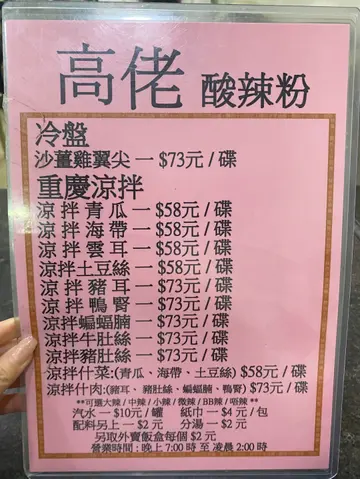 高佬 酸辣粉
冷盤
沙薑雞翼尖 一 $73元 / 碟
重慶涼拌
涼 拌 青 瓜 一 $58元 / 碟
涼 拌 海 帶 一 $58元 / 碟
涼 拌 雲 耳 一 $58元 / 碟
涼拌土豆絲 一 $58元 / 碟
涼 拌 豬 耳 一 $73元 / 碟
涼 拌 鴨 腎 一 $73元 / 碟
涼拌蝙蝠腩 一 $73元 / 碟
涼拌牛肚絲 一 $73元 / 碟
涼拌豬肚絲 一 $73元 / 碟
涼拌什菜:(青瓜、海帶、土豆絲) $58元 / 碟
涼拌什肉:(豬耳、豬肚絲、蝙蝠腩、鴨腎) $73元 / 碟
**可選大辣 / 中辣 / 小辣 / 微辣 / BB辣 / 唔辣 **
汽水 一 $10元 / 罐 紙巾 一 $4 元 / 包
配料另上 一 $2 元 分湯 一 $2 元
另取外賣飯盒每個 $2 元
營業時間 : 晚上 7:00 時 至 凌晨 2:00 時